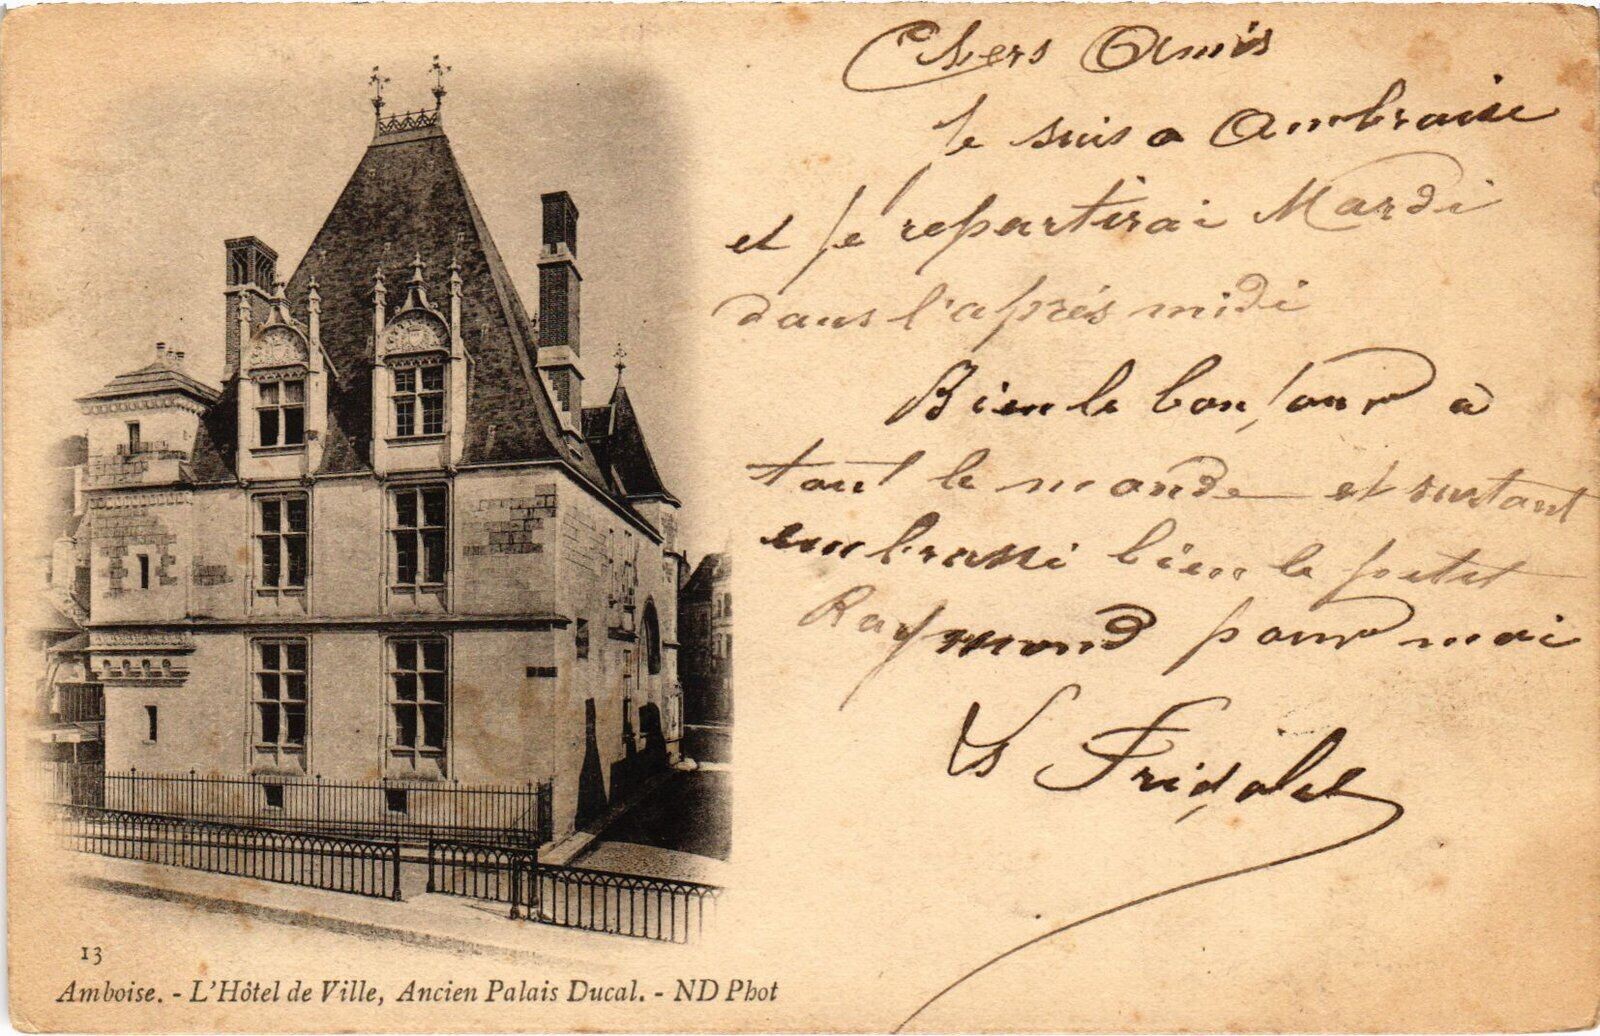 Chers Amis
Je suis a Ambraise
et je repartirai Mardi
dans l'aprés midi
Bien le bonjour a
tout le monde et surtout
embrassé bien le petit
Raymond pour moi
13
Amboise. - L'Hôtel de Ville, Ancien Palais Ducal. - ND Phot